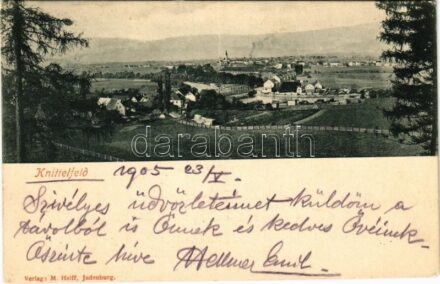 darabanth
Knittelfeld 1905 23/V.
Szivélyes üdvözletemet küldöm a
távolból is Önnek és kedves Övéinek
Őszinte híve Wellner Emil
Verlag: M. Haiff, Judenburg.